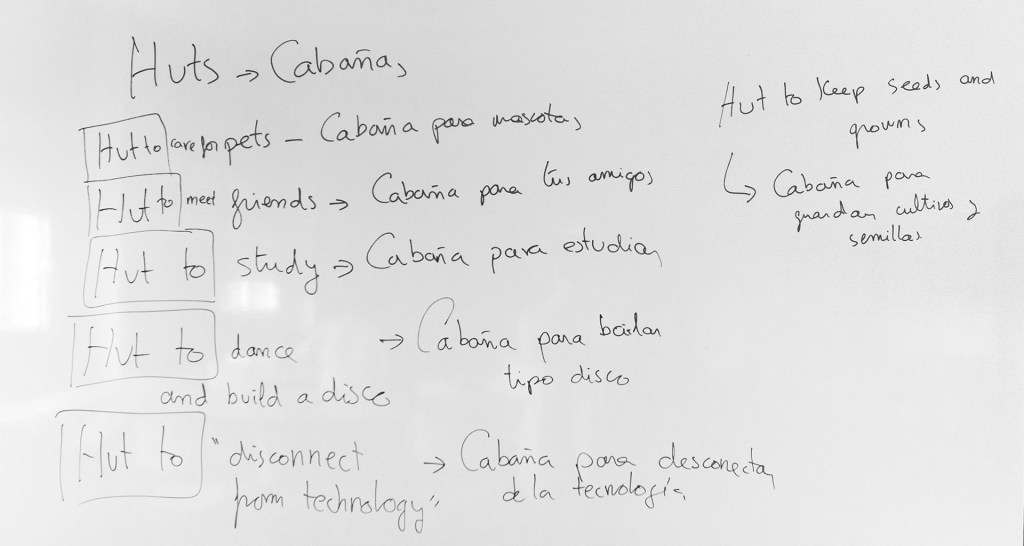 Huts → Cabañas
Hut to care for pets - Cabaña para mascotas
Hut to meet friends → Cabaña para tus amigos
Hut to study → Cabaña para estudiar
Hut to dance → Cabaña para bailar
and build a disco tipo disco
Hut to "disconnect → Cabaña para desconectar
from technology" de la tecnología
Hut to keep seeds and
growns
↳ Cabaña para
guardar cultivos y
semillas